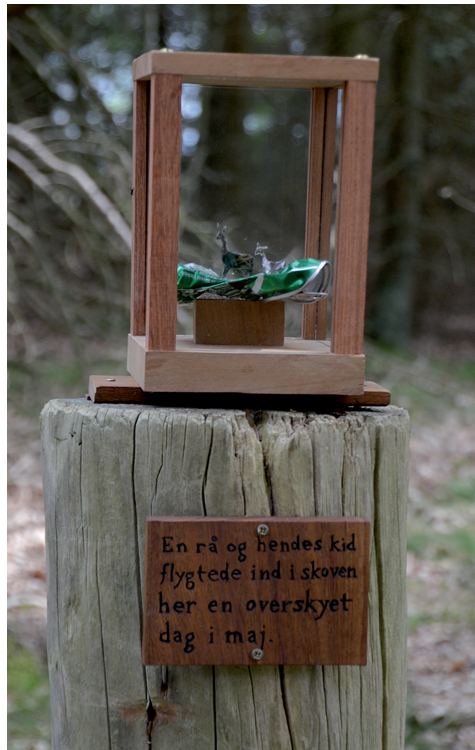 En rå og hendes kid
flygtede ind i skoven
her en overskyet
dag i maj.